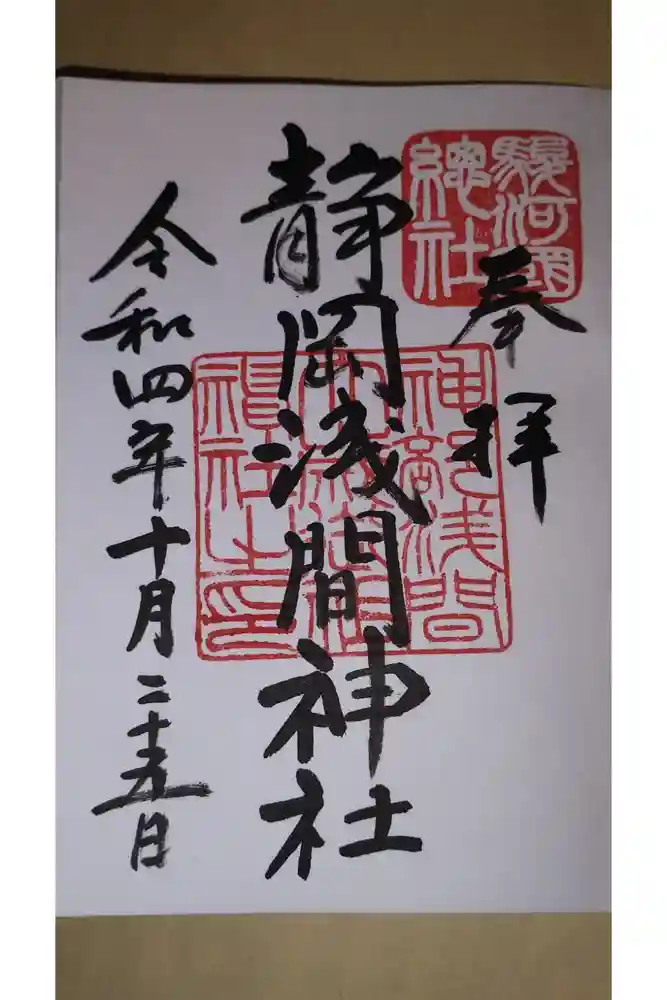 奉拝
駿河國
總社
静岡浅間神社
神部浅間
令和四年十月二十五日